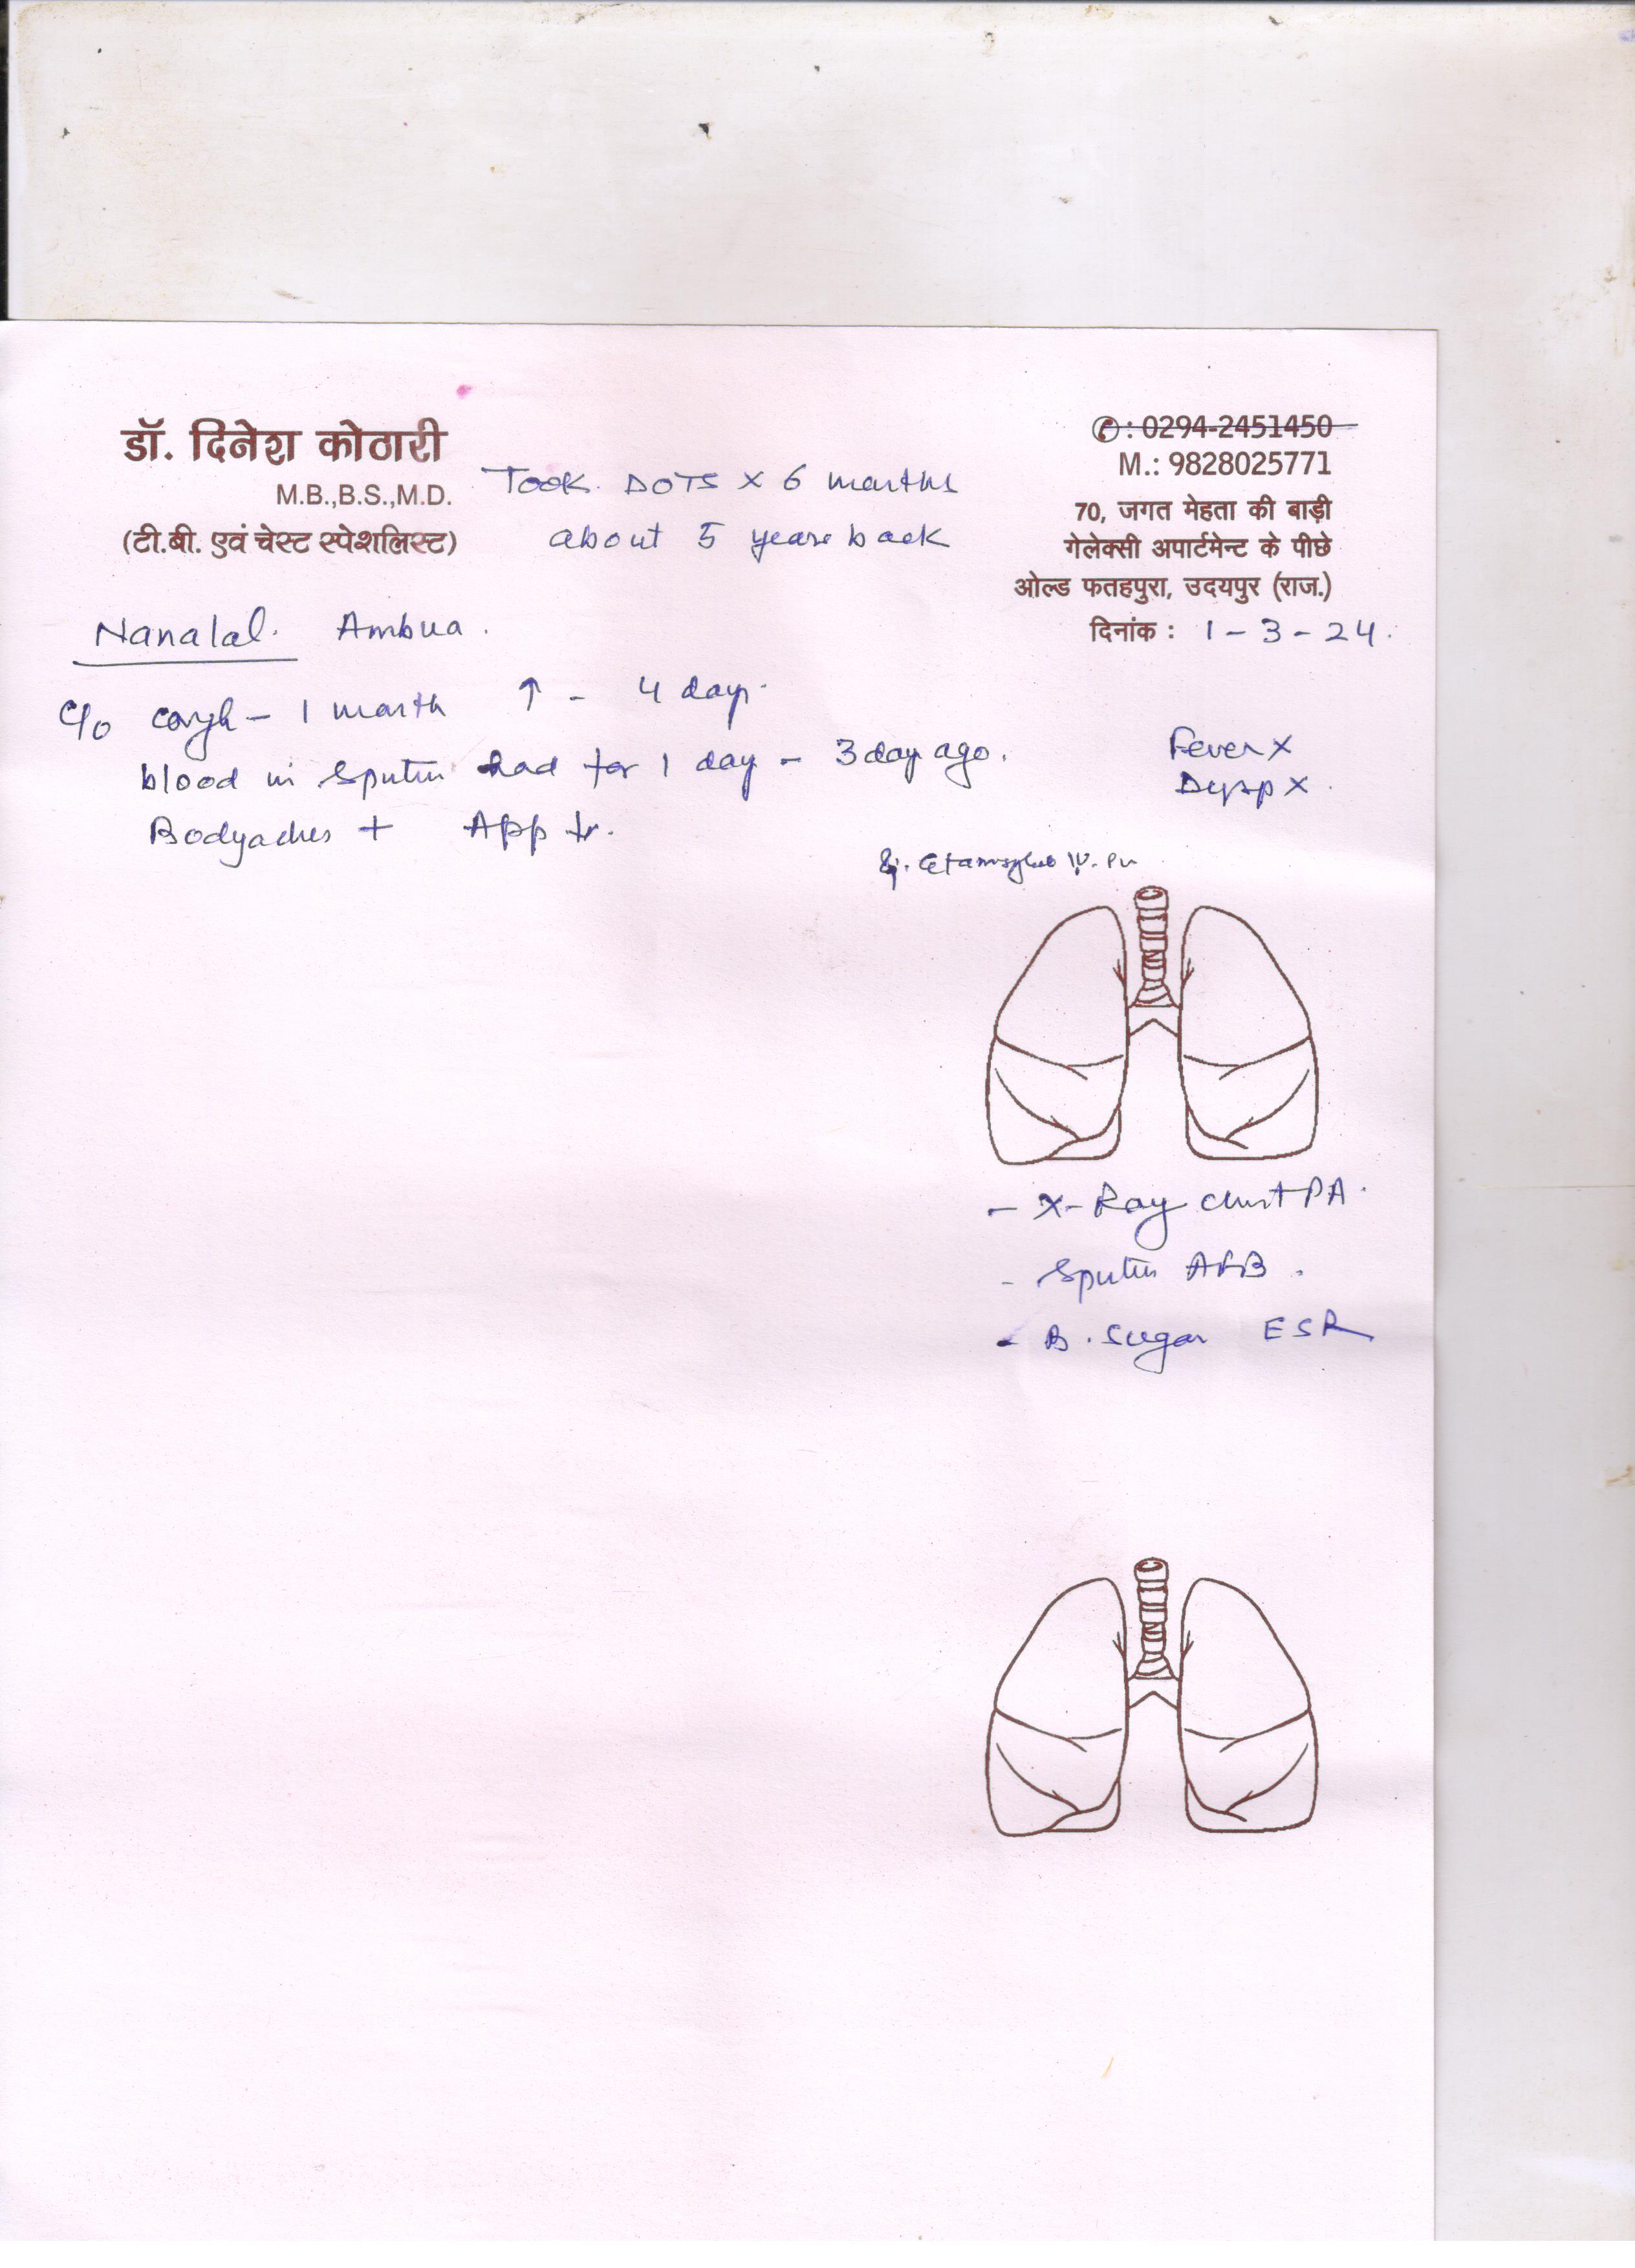 डॉ. दिनेश कोठारी
M.B.,B.S.,M.D.
(टी.बी. एवं चेस्ट स्पेशलिस्ट)
Took DOTS x 6 months
about 5 years back
✆: 0294-2451450
M.: 9828025771
70, जगत मेहता की बाड़ी
गेलेक्सी अपार्टमेन्ट के पीछे
ओल्ड फतहपुरा, उदयपुर (राज.)
दिनांक : 1-3-24.
Nanalal. Ambua.
C/o cough - 1 month ↑ - 4 days.
blood in sputum had for 1 day - 3 day ago.
Fever x
Dysp x.
Bodyaches + App
Inj. Etamsylate IV.
- X-Ray chest PA.
- Sputum AFB.
- B. Sugar ESR